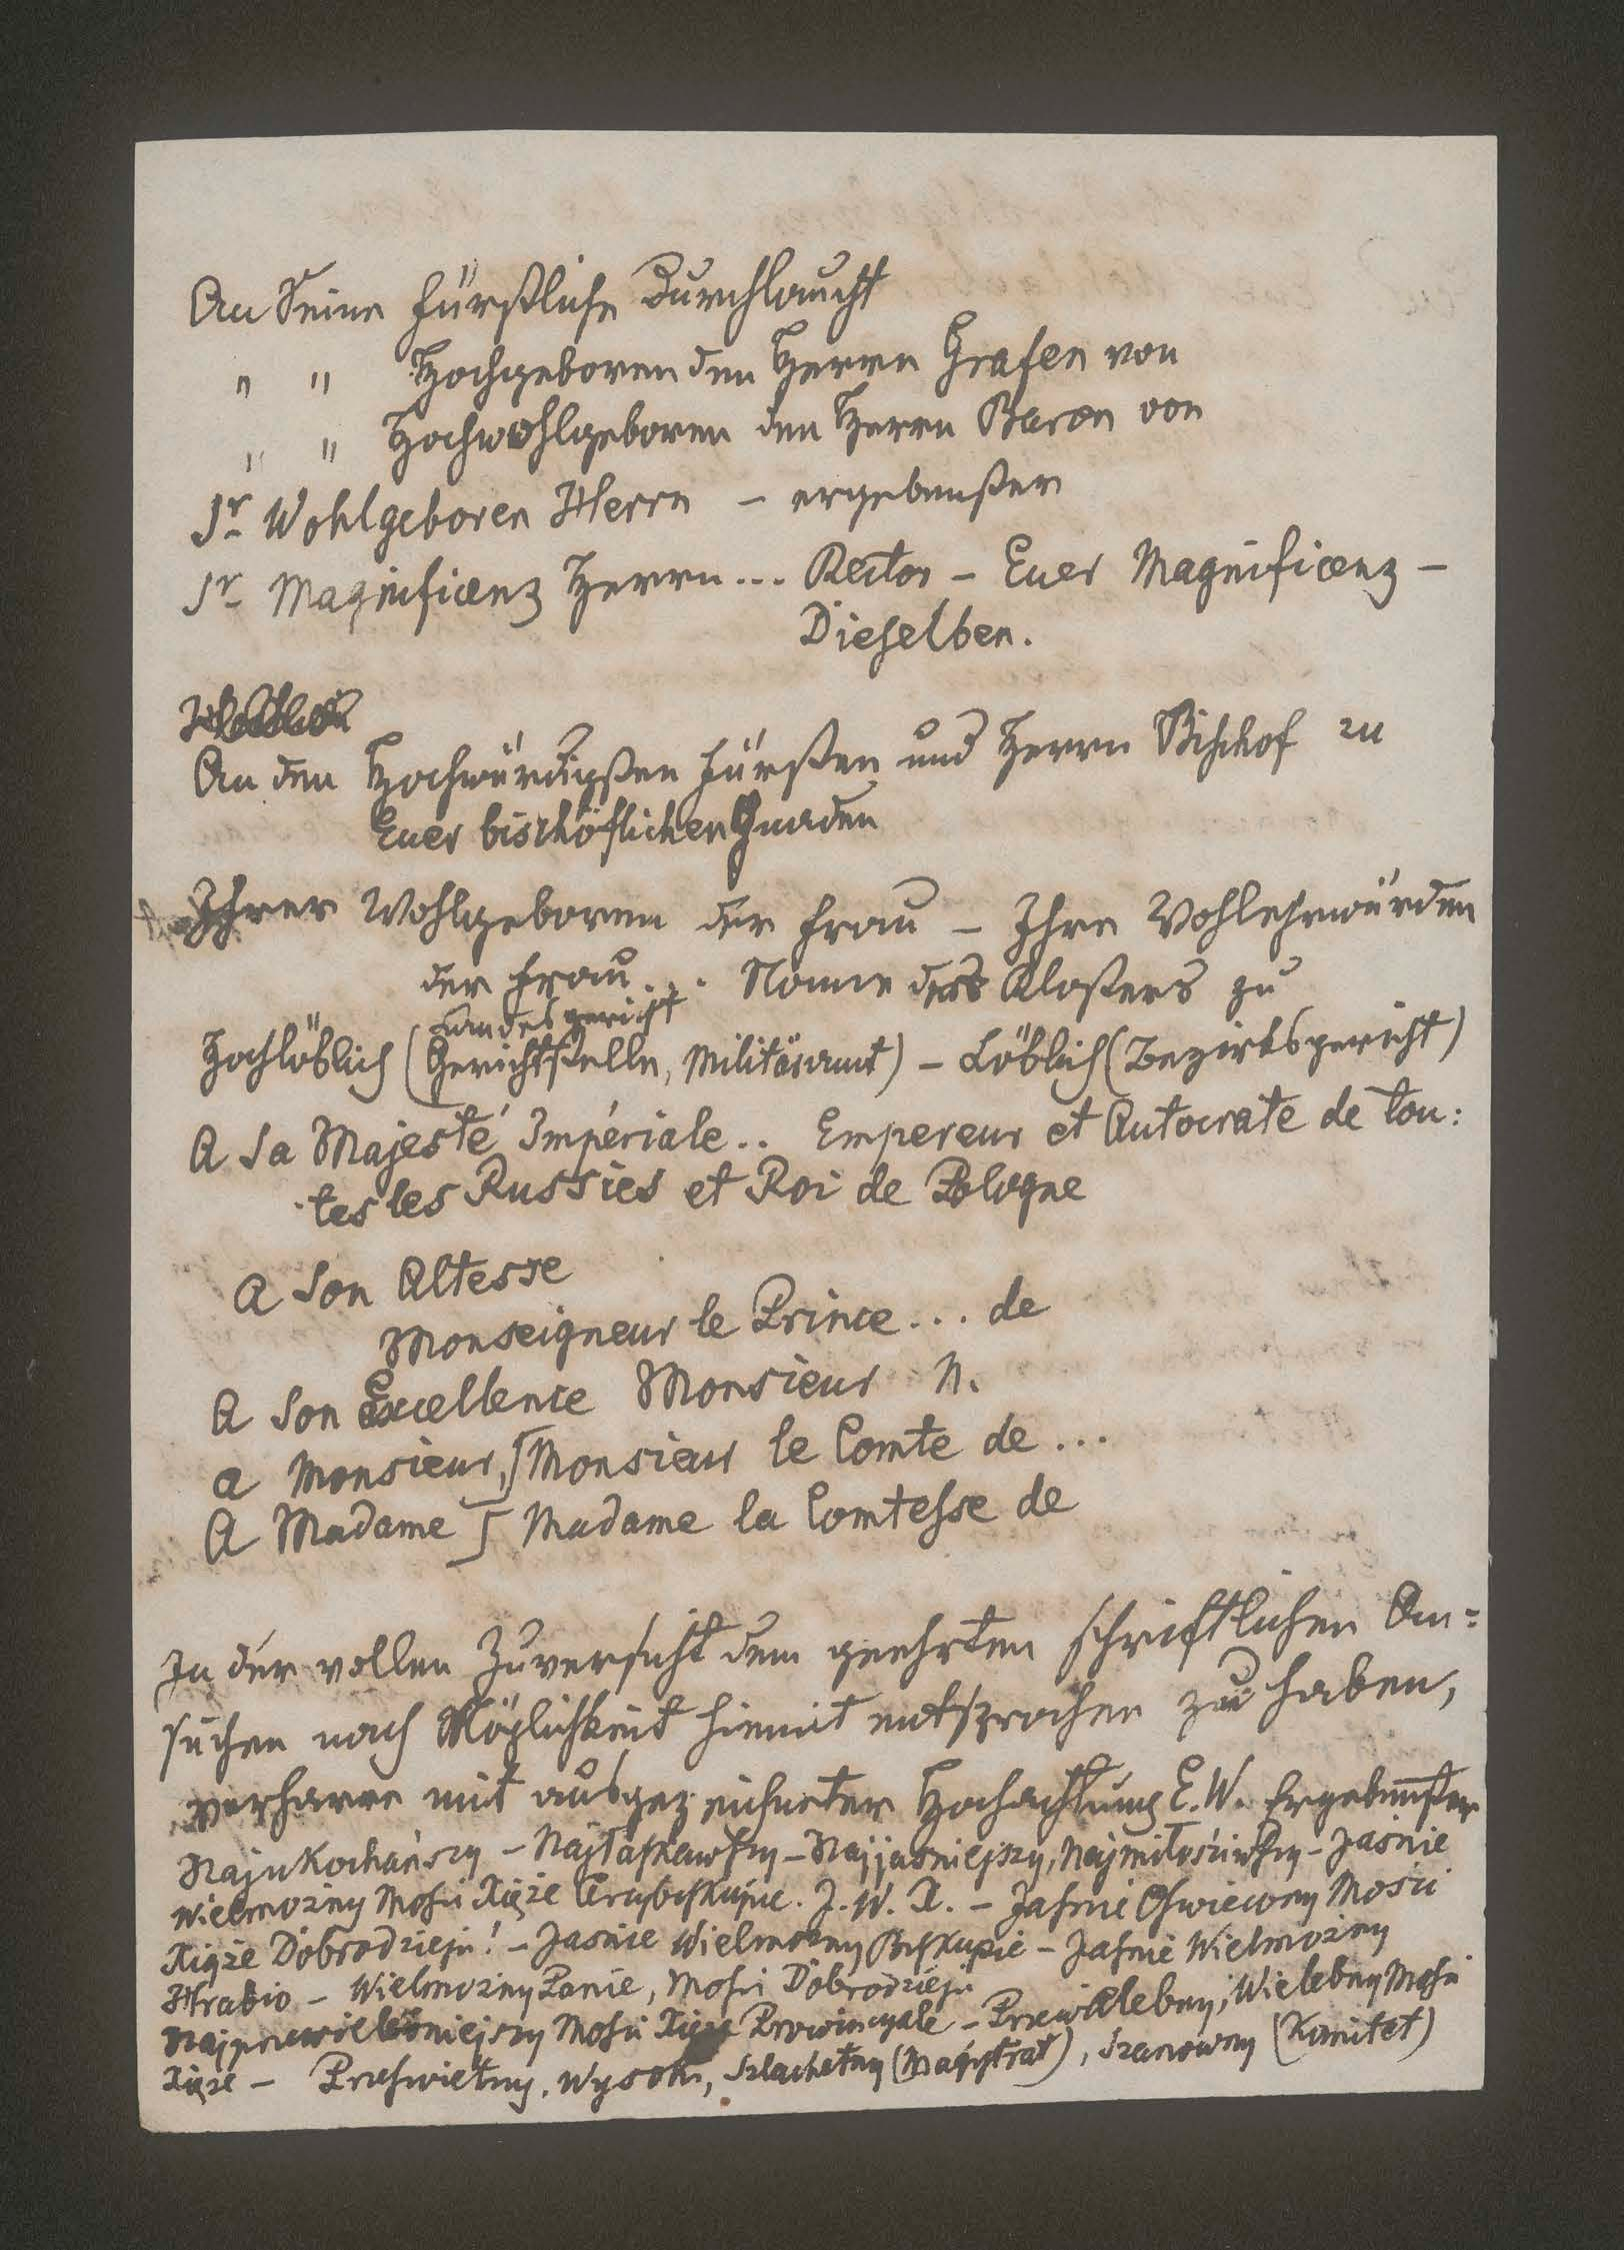 An Seine Fürstliche Durchlaucht
" " Hochgeboren den Herrn Grafen von
" " Hochwohlgeboren den Herrn Baron von
Sr Wohlgeboren Herrn – ergebenster
Sr Magnificenz Herrn... Rector – Euer Magnificenz –
Dieselben.
An den Hochwürdigsten Fürsten und Herrn Bischof zu
Euer bischöflichen Gnaden
Ihrer Wohlgeboren der Frau – Ihre Wohlehrwürden
der Frau... Nonne des Klosters zu
Landesgericht
Hochlöblich (Gerichtstelle, Militäramt) – Löblich (Bezirksgericht)
A Sa Majesté Impériale.. Empereur et Autocrate de tou:
tes les Russies et Roi de Pologne
A Son Altesse
Monseigneur le Prince... de
A Son Excellence Monsieur N.
a Monsieur, ∫ Monsieur le Comte de...
A Madame ∫ Madame la Comtesse de
In der vollen Zuversicht dem geehrten schriftlichen An=
suchen nach Möglichkeit hiemit entsprochen zu haben,
verharre mit ausgezeichneter Hochachtung E.W. Ergebenster
Najukochańszy – Najłaskawszy – Najjaśniejszy, Najmiłościwszy – Jaśnie
Wielmożny Mości Xięże Arcybiskupie. J. W. X. – Jaśnie Oświecony Mości
Xiąże Dobrodzieju! – Jaśnie Wielmożny Biskupie – Jaśnie Wielmożny
Hrabio – Wielmożny Panie, Mości Dobrodzieju
Najprzewielebniejszy Mości Xięże Prowincyale – Przewielebny, Wielebny Mości
Xięże – Prześwietny, Wysoki, Szlachetny (Magistrat), Szanowny (Komitet)